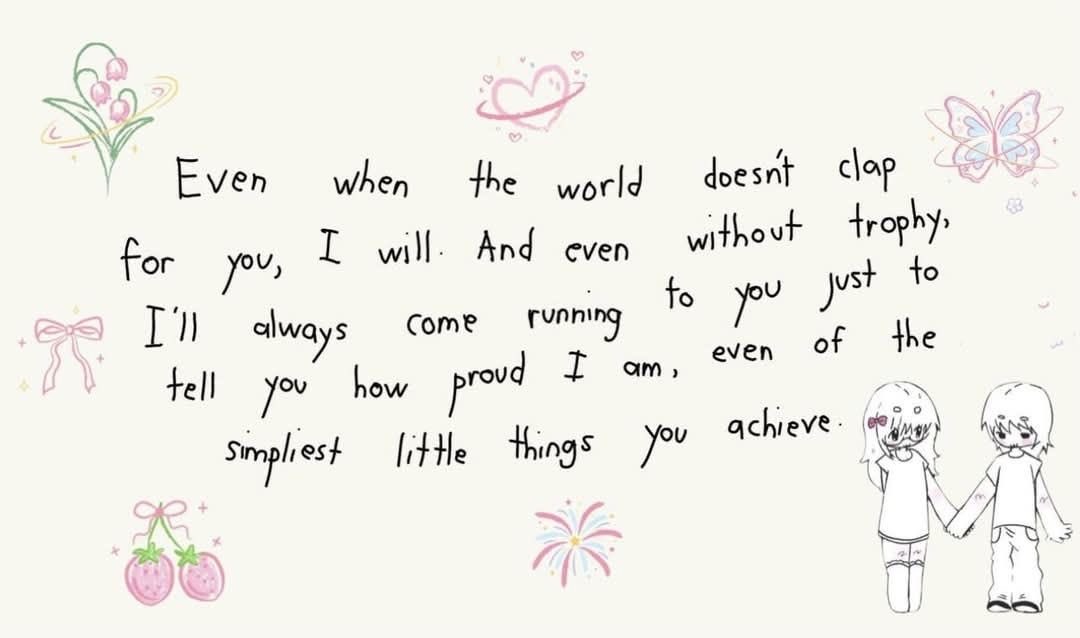 Even when the world doesn't clap
for you, I will. And even without trophy,
I'll always come running to you just to
tell you how proud I am, even of the
simpliest little things you achieve.